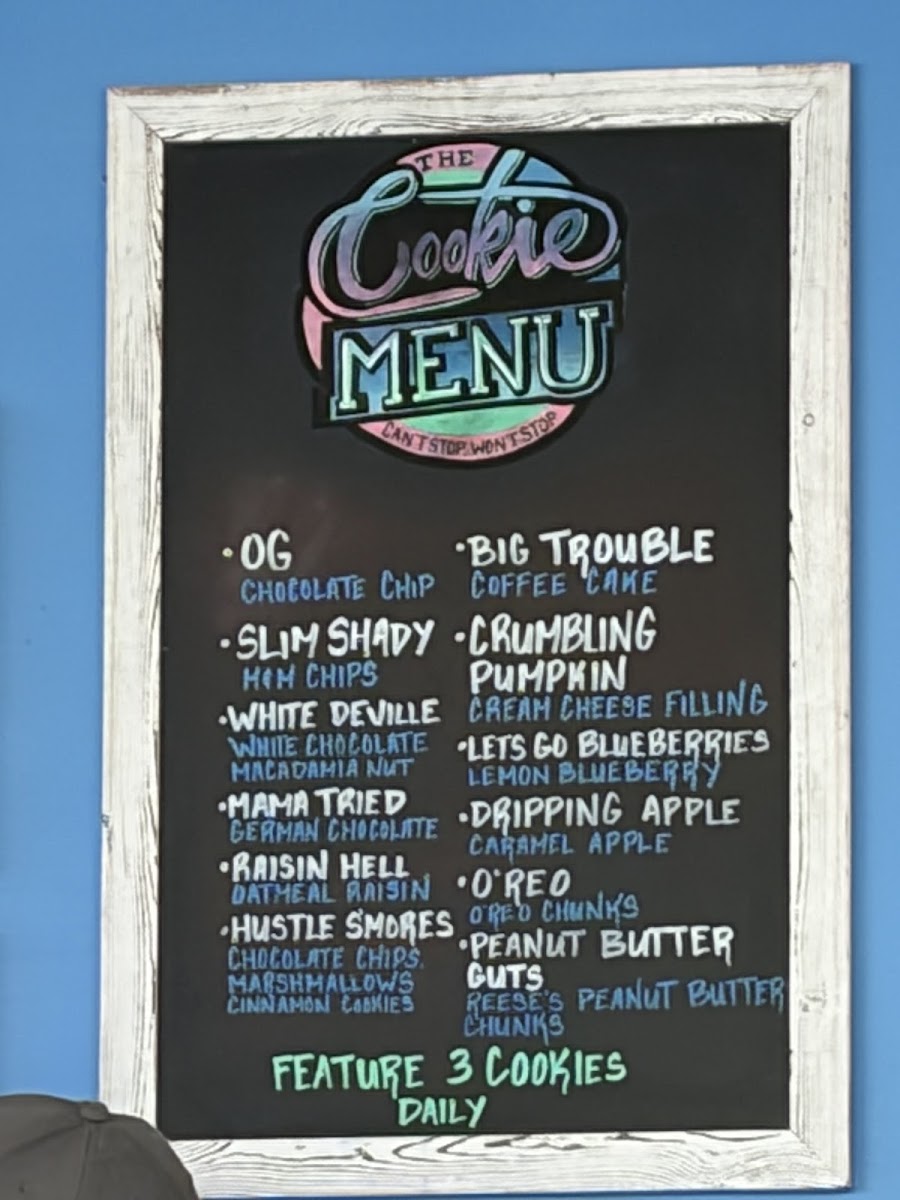 THE
Cookie
MENU
CAN'T STOP. WON'T STOP
• OG
CHOCOLATE CHIP
• SLIM SHADY
M&M CHIPS
• WHITE DEVILLE
WHITE CHOCOLATE
MACADAMIA NUT
• MAMA TRIED
GERMAN CHOCOLATE
• RAISIN HELL
OATMEAL RAISIN
• HUSTLE S'MORES
CHOCOLATE CHIPS.
MARSHMALLOWS
CINNAMON COOKIES
• BIG TROUBLE
COFFEE CAKE
• CRUMBLING
PUMPKIN
CREAM CHEESE FILLING
• LETS GO BLUEBERRIES
LEMON BLUEBERRY
• DRIPPING APPLE
CARAMEL APPLE
• O'REO
O'REO CHUNKS
• PEANUT BUTTER
GUTS
REESE'S PEANUT BUTTER
CHUNKS
FEATURE 3 COOKIES
DAILY